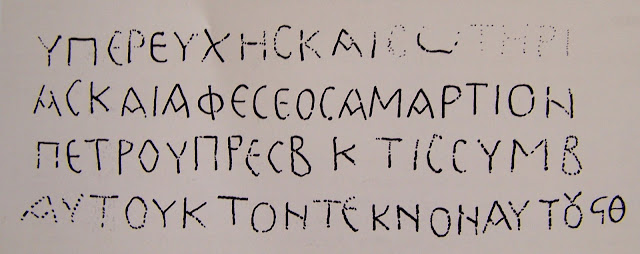 ΥΠΕΡΕΥΧΗСΚΑΙСΩΤΗΡΙ
ΑСΚΑΙΑΦΕСΕΟСΑΜΑΡΤΙΟΝ
ΠΕΤΡΟΥΠΡΕСΒ Κ ΤΙССΥΜΒ
ΑΥΤΟΥΚ ΤΟΝΤΕΚΝΟΝΑΥΤȢϤΘ